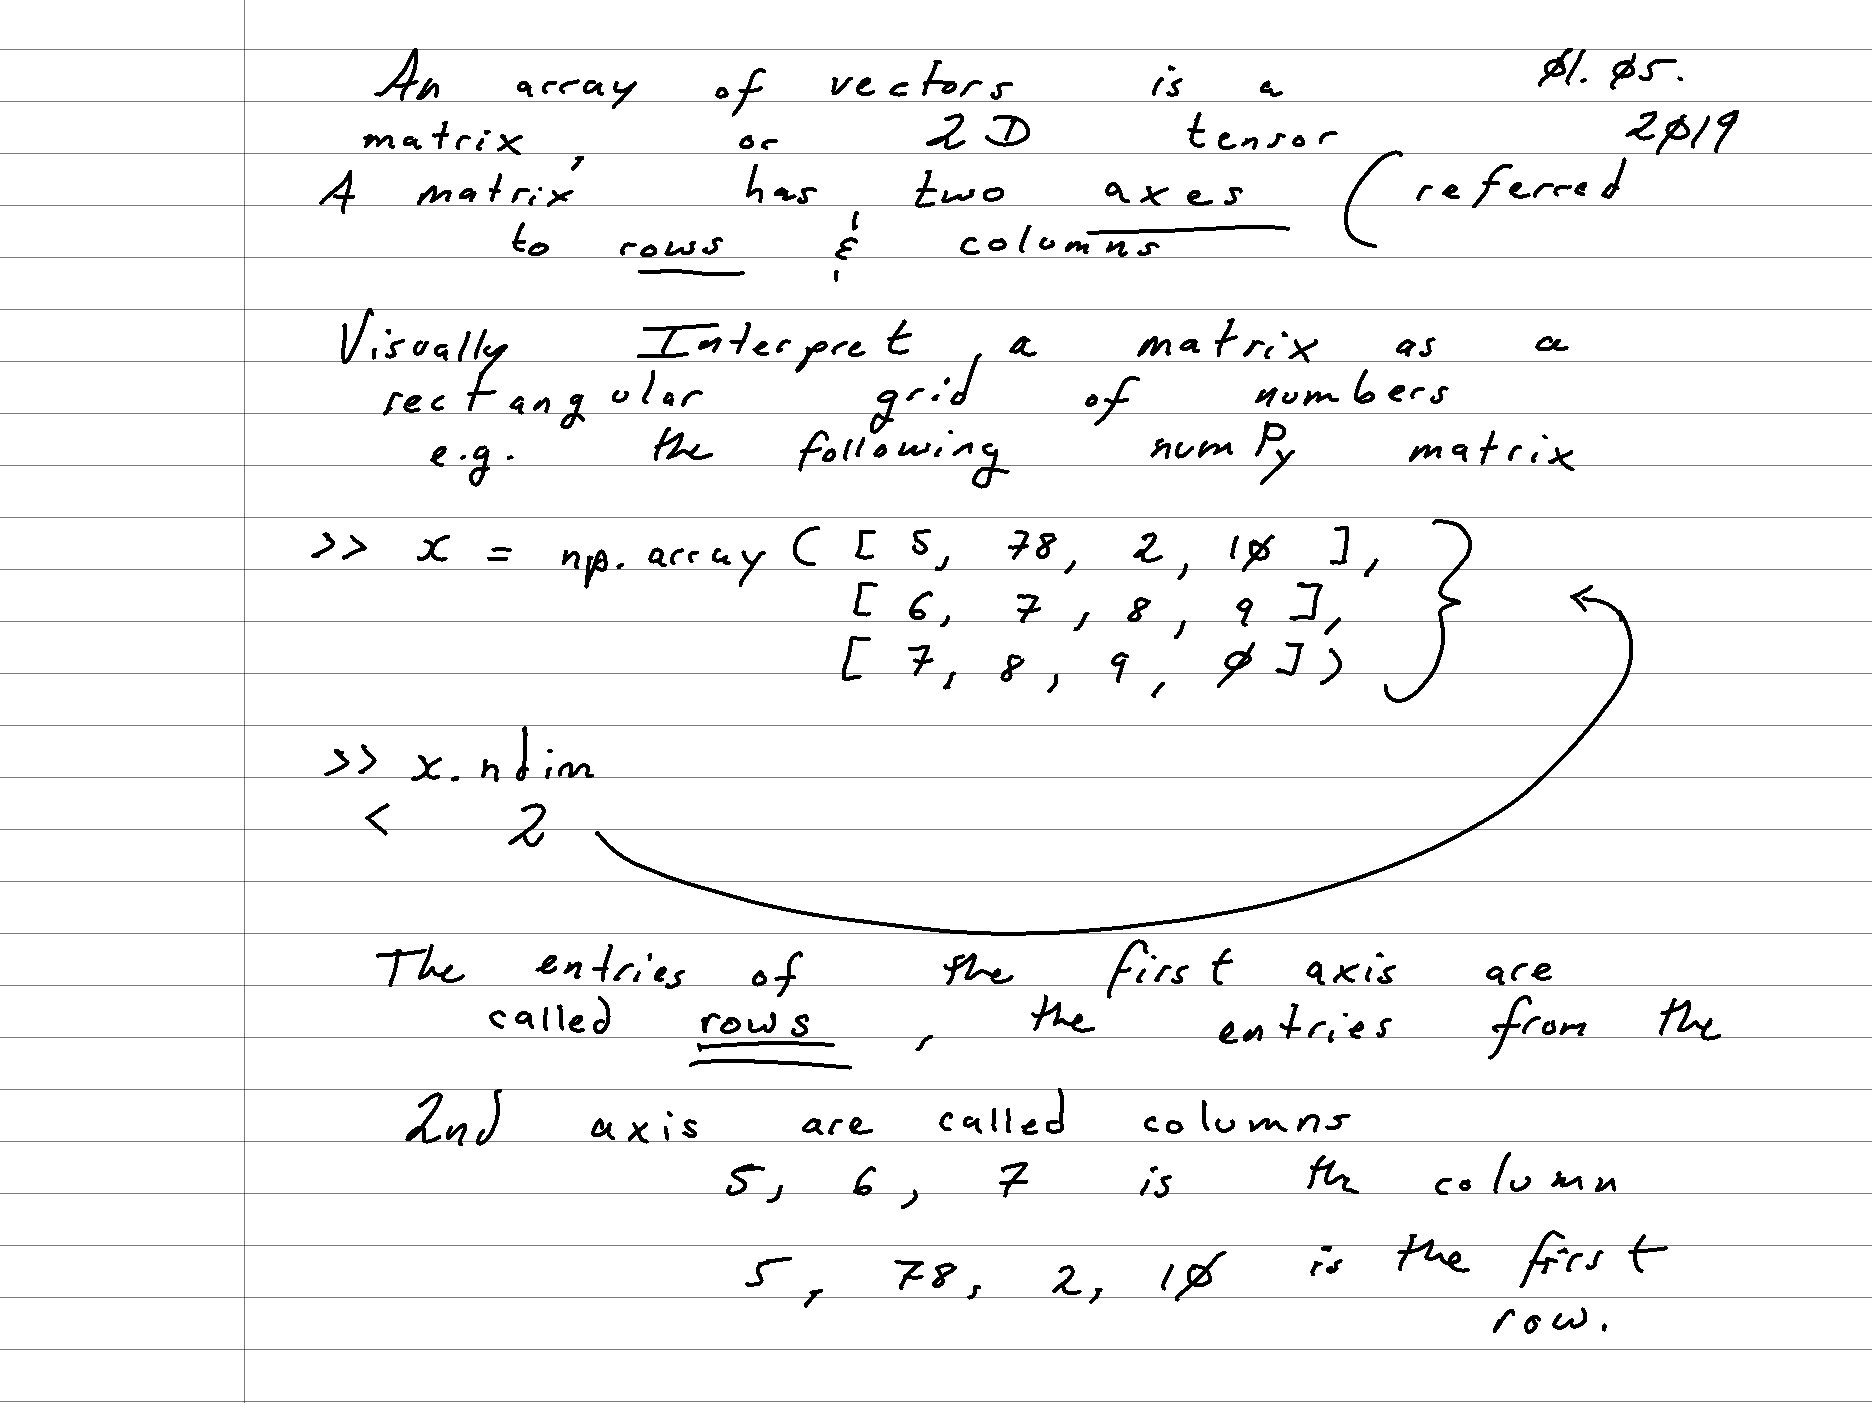 An array of vectors is a Ø1. Ø5.
matrix, or 2D tensor 2Ø19
A matrix has two axes (referred
to rows & columns
Visually Interpret, a matrix as a
rectangular grid of numbers
e.g. the following numPy matrix
>> x = np.array ( [ 5, 78, 2, 1Ø ],
[ 6, 7, 8, 9 ],
[ 7, 8, 9, Ø ] )
>> x.ndim
< 2
The entries of the first axis are
called rows, the entries from the
2nd axis are called columns
5, 6, 7 is the column
5, 78, 2, 1Ø is the first
row.